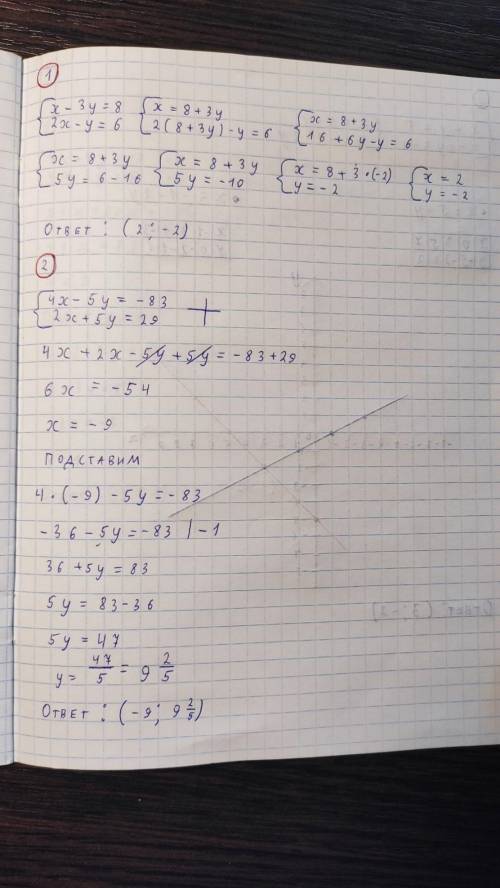 1
x - 3y = 8   x = 8 + 3y   x = 8 + 3y
2x - y = 6   2(8 + 3y) - y = 6   16 + 6y - y = 6
x = 8 + 3y   x = 8 + 3y   x = 8 + 3 · (-2)   x = 2
5y = 6 - 16   5y = -10   y = -2   y = -2
Ответ: (2; -2)
2
4x - 5y = -83
2x + 5y = 29   +
4x + 2x - 5y + 5y = -83 + 29
6x = -54
x = -9
подставим
4 · (-9) - 5y = -83
-36 - 5y = -83 | -1
36 + 5y = 83
5y = 83 - 36
5y = 47
y = 47/5 = 9 2/5
Ответ: (-9; 9 2/5)